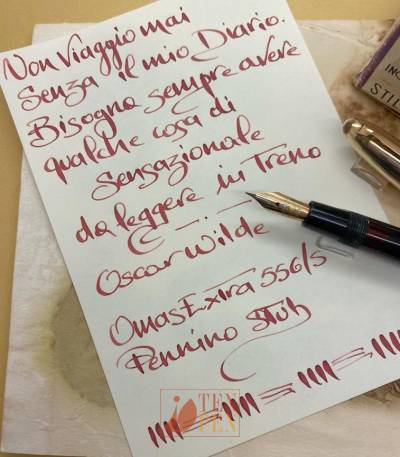 Non Viaggio mai
Senza il mio Diario.
Bisogna sempre avere
qualche cosa di
Sensazionale
da leggere in Treno
Oscar Wilde
Omas Extra 556/S
Pennino Stub
TEN
PEN
STIL